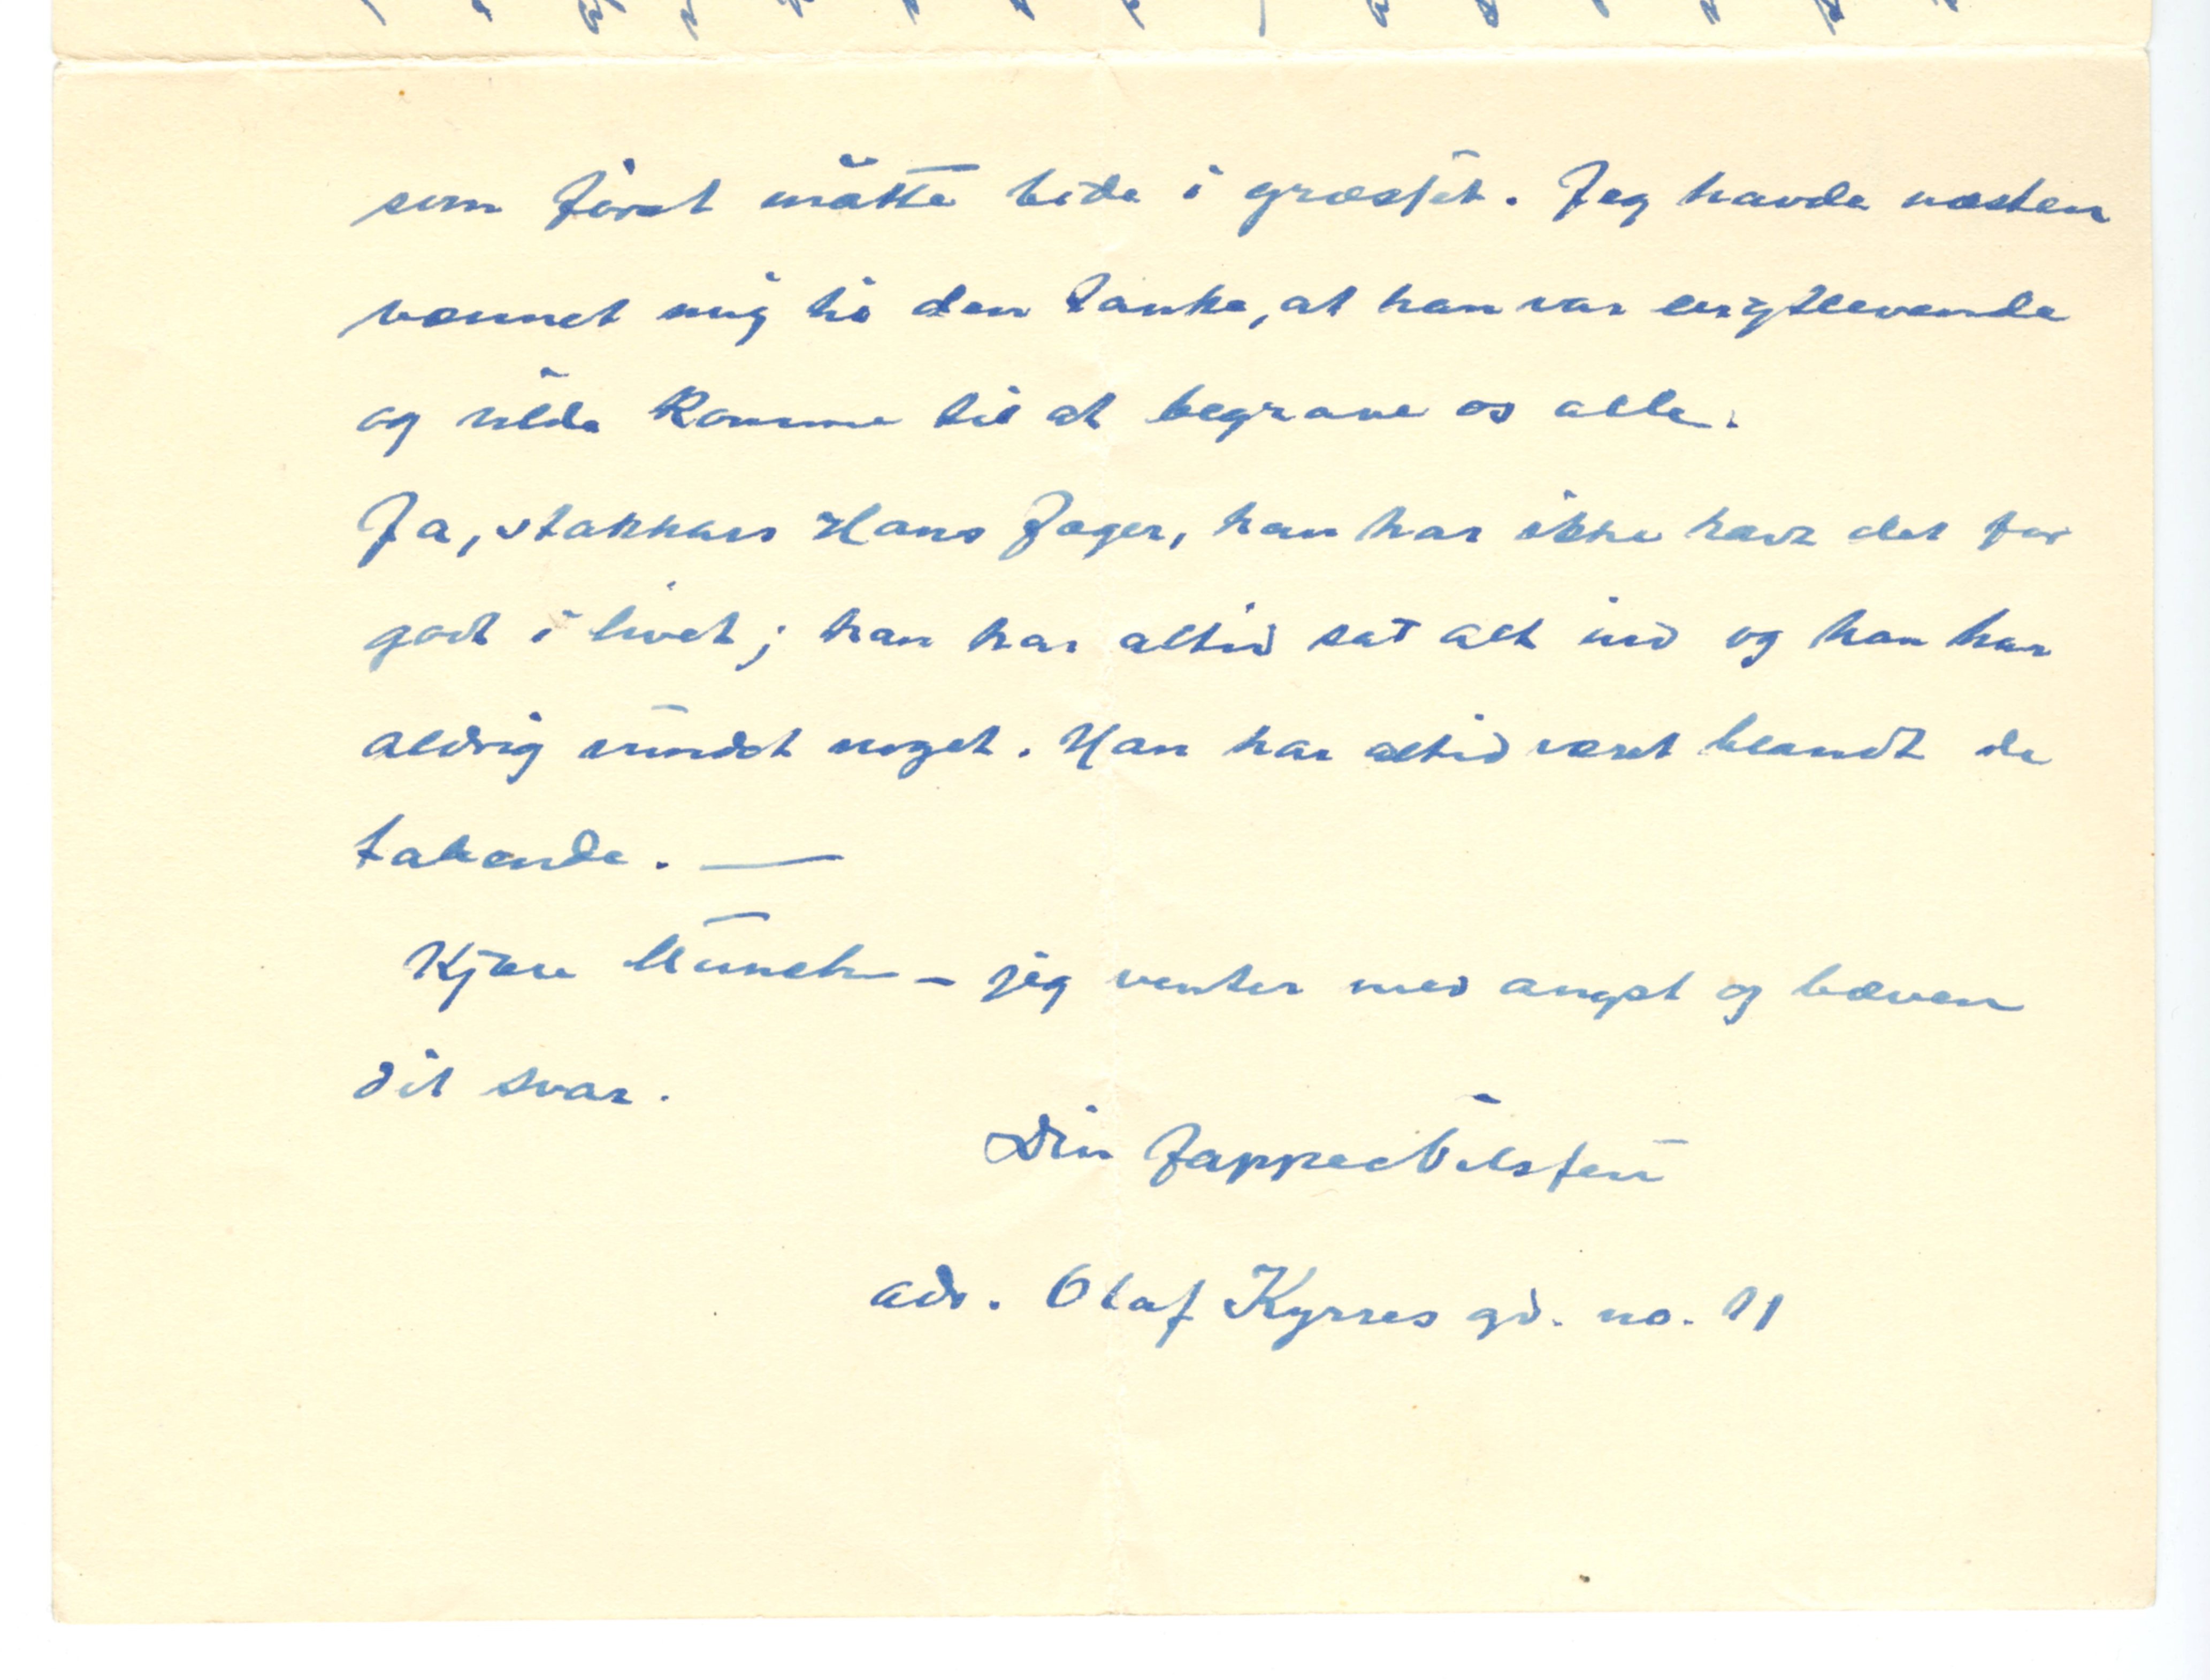 som først måtte bide i græsset. Jeg havde næsten
vænnet mig til den tanke, at han var evigtlevende
og vilde komme til at begrave os alle.
Ja, stakkars Hans Jæger, han har ikke havt det for
godt i livet; han har altid sat alt ind og han har
aldrig vundet noget. Han har altid været blandt de
tabende. —
Kjære Munch – jeg venter med angst og bæven
dit svar.
Din Jappe Nilssen
adr. Olaf Kyrres gd. no. 11